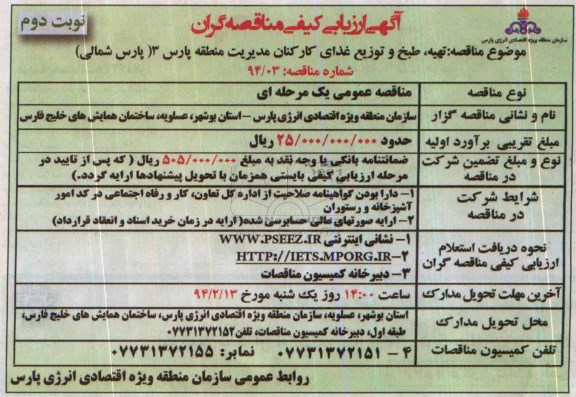 آگهی ارزیابی کیفی مناقصه گران
نوبت دوم
سازمان منطقه ویژه اقتصادی انرژی پارس
موضوع مناقصه: تهیه، طبخ و توزیع غذای کارکنان مدیریت منطقه پارس ۳( پارس شمالی)
شماره مناقصه: ۹۴/۰۳
نوع مناقصه
مناقصه عمومی یک مرحله ای
نام و نشانی مناقصه گزار
سازمان منطقه ویژه اقتصادی انرژی پارس – استان بوشهر، عسلویه، ساختمان همایش های خلیج فارس
مبلغ تقریبی برآورد اولیه
حدود ۲۵/۰۰۰/۰۰۰/۰۰۰ ریال
نوع و مبلغ تضمین شرکت
در مناقصه
ضمانتنامه بانکی یا وجه نقد به مبلغ ۵۰۵/۰۰۰/۰۰۰ ریال ( که پس از تایید در
مرحله ارزیابی کیفی بایستی همزمان با تحویل پیشنهادها ارایه گردد.)
شرایط شرکت
در مناقصه
۱– دارا بودن گواهینامه صلاحیت از اداره کل تعاون، کار و رفاه اجتماعی در کد امور
آشپزخانه و رستوران
۲– ارایه صورتهای مالی حسابرسی شده( ارایه در زمان خرید اسناد و انعقاد قرارداد)
نحوه دریافت استعلام
ارزیابی کیفی مناقصه گران
۱– نشانی اینترنتی WWW.PSEEZ.IR
۲–HTTP://IETS.MPORG.IR
۳– دبیرخانه کمیسیون مناقصات
آخرین مهلت تحویل مدارک
ساعت ۱۴:۰۰ روز یک شنبه مورخ ۹۴/۲/۱۳
محل تحویل مدارک
استان بوشهر، عسلویه، سازمان منطقه ویژه اقتصادی انرژی پارس، ساختمان همایش های خلیج فارس،
طبقه اول، دبیرخانه کمیسیون مناقصات، تلفن۰۷۷۳۱۳۷۲۱۵۲
تلفن کمیسیون مناقصات
۴ – ۰۷۷۳۱۳۷۲۱۵۱ نمابر: ۰۷۷۳۱۳۷۲۱۵۵
روابط عمومی سازمان منطقه ویژه اقتصادی انرژی پارس